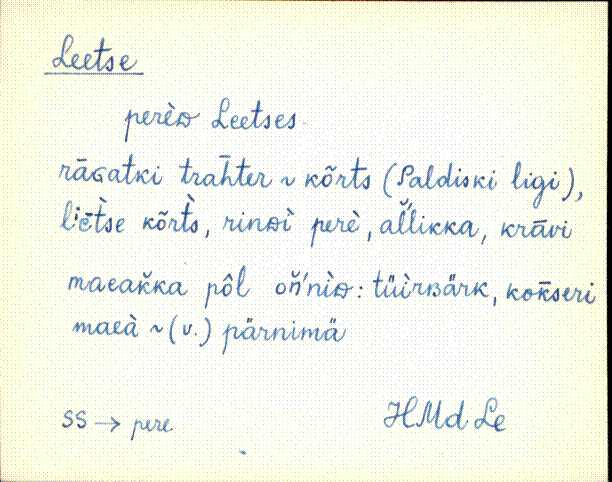 Leetse
perèᴅ Leetses.
rāɢatᴋi trah̄ter ~ kõrts (Paldisᴋi ligi),
liēt̀se kõrt̀s, rinᴅì perè, al̆'liᴋᴋa, krāvi
maᴇaᴋ̆ᴋa pôl on̆'nìᴅ: tüìrʙärᴋ, koᴋ̄seri
maᴇà ~ (v.) pärnimä
SS → pere
HMd Le